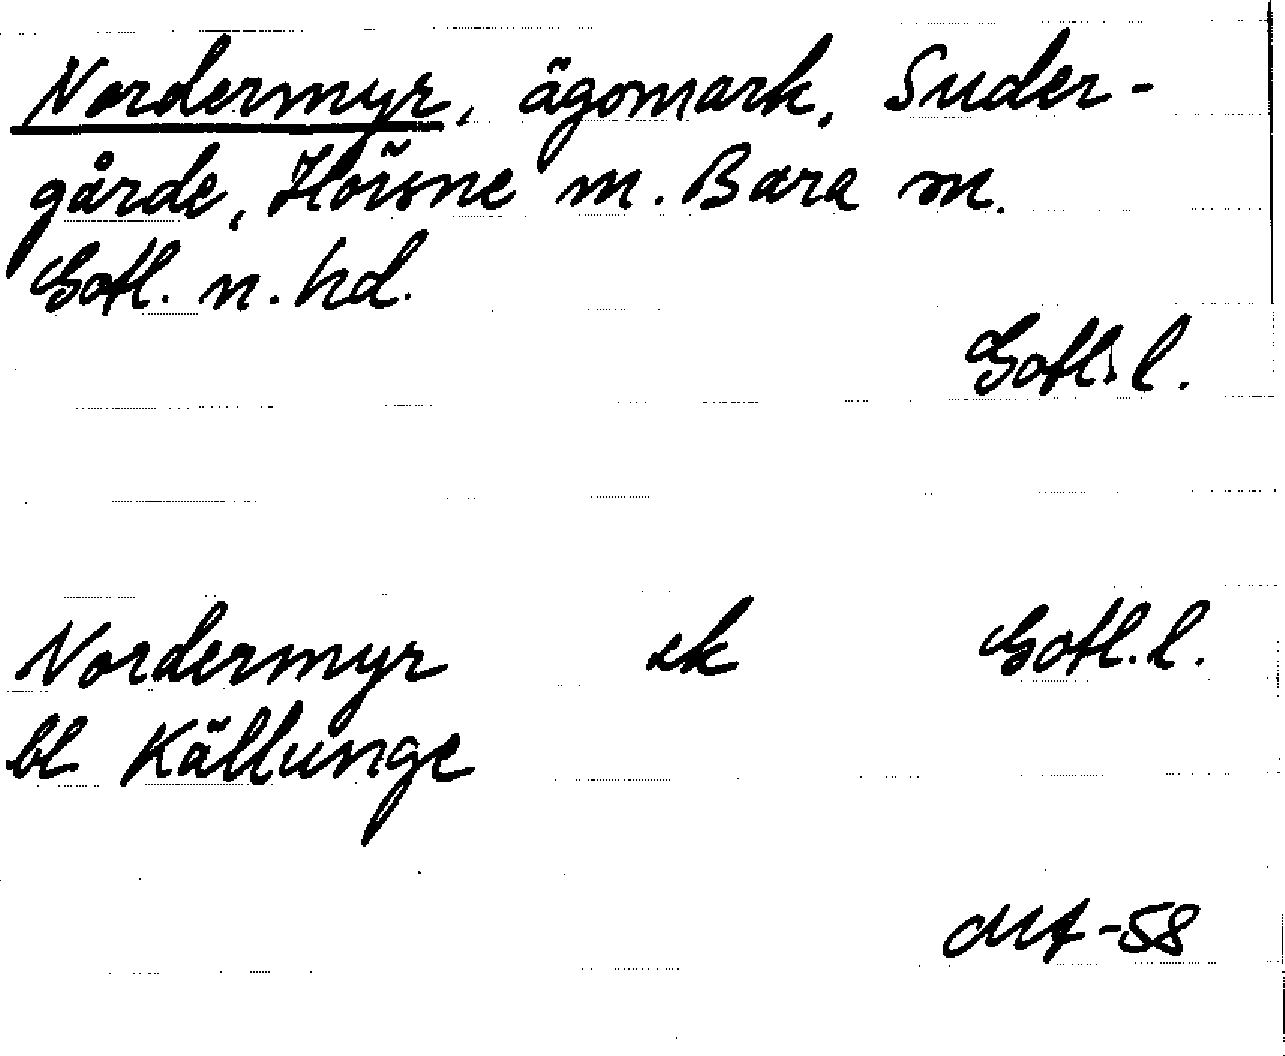 Nordermyr, ägomark, Suder-
gårde, Hörsne m. Bara sn.
Gotl. n. hd.
Gotl. l.
Nordermyr ek Gotl. l.
bl Källunge
MA-58